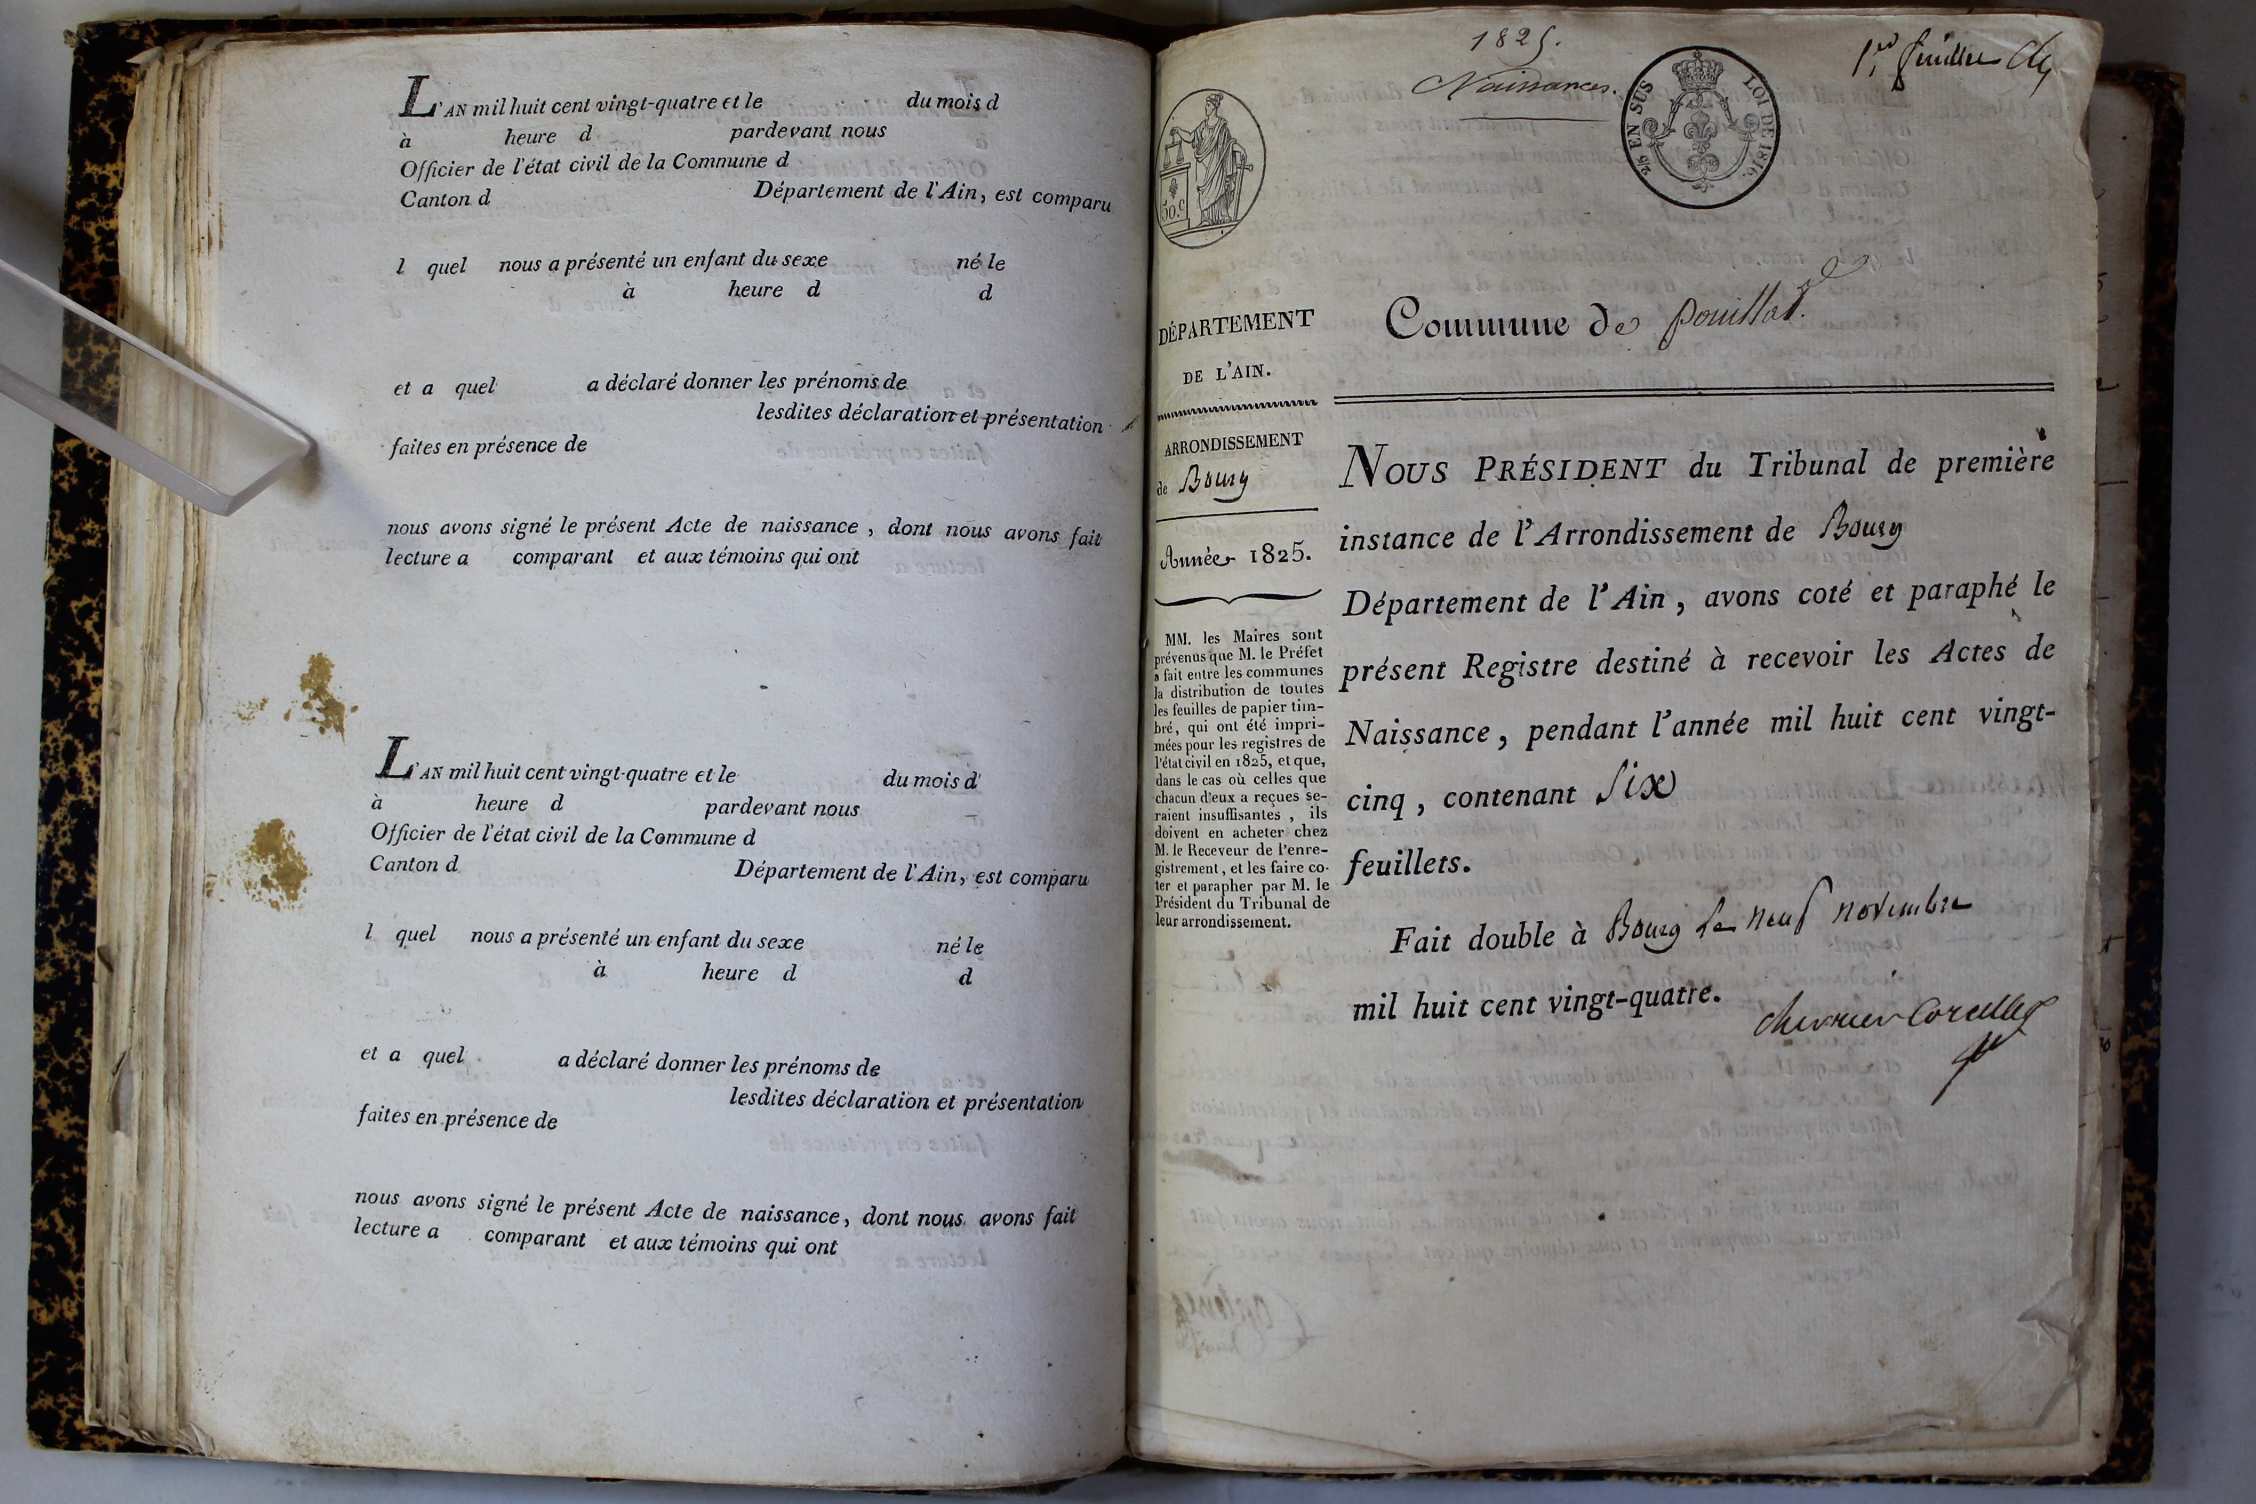 L'AN mil huit cent vingt-quatre et le du mois d
à heure d pardevant nous
Officier de l'état civil de la Commune d
Canton d Département de l'Ain, est comparu
l quel nous a présenté un enfant du sexe né le
à heure d d
et a quel a déclaré donner les prénoms de
lesdites déclaration et présentation
faites en présence de
nous avons signé le présent Acte de naissance, dont nous avons fait
lecture a comparant et aux témoins qui ont
L'AN mil huit cent vingt-quatre et le du mois d
à heure d pardevant nous
Officier de l'état civil de la Commune d
Canton d Département de l'Ain, est comparu
l quel nous a présenté un enfant du sexe né le
à heure d d
et a quel a déclaré donner les prénoms de
lesdites déclaration et présentation
faites en présence de
nous avons signé le présent Acte de naissance, dont nous avons fait
lecture a comparant et aux témoins qui ont
1825.
Naissances.
1er feuillet
50.c
EN SUS LOI DE 1816.
DÉPARTEMENT
DE L'AIN.
ARRONDISSEMENT
de Bourg
Année 1825.
MM. les Maires sont
prévenus que M. le Préfet
a fait entre les communes
la distribution de toutes
les feuilles de papier tim-
bré, qui ont été impri-
mées pour les registres de
l'état civil en 1825, et que,
dans le cas où celles que
chacun d'eux a reçues se-
raient insuffisantes, ils
doivent en acheter chez
M. le Receveur de l'enre-
gistrement, et les faire co-
ter et parapher par M. le
Président du Tribunal de
leur arrondissement.
Commune de pouillat.
NOUS PRÉSIDENT du Tribunal de première
instance de l'Arrondissement de Bourg
Département de l'Ain, avons coté et paraphé le
présent Registre destiné à recevoir les Actes de
Naissance, pendant l'année mil huit cent vingt-
cinq, contenant Six
feuillets.
Fait double à Bourg le neuf novembre
mil huit cent vingt-quatre.
chevrier Corcelles